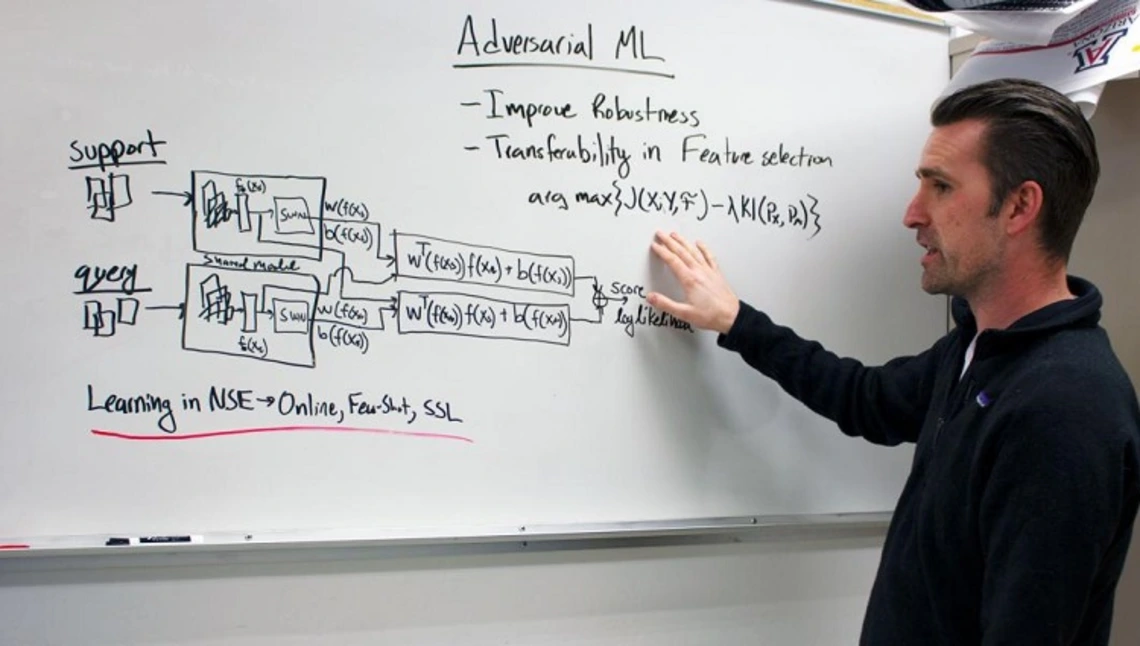 Adversarial ML
- Improve Robustness
- Transferability in Feature selection
arg max{J(X,Y,F̃) - λKl(p_x, p_n)}
support
f_θ(x_s)
SWN
W(f(x_s)
b(f(x_s))
Shared model
query
SWN
W(f(x_s)
b(f(x_s))
f_θ(x_s)
W^T(f(x_s))f(x_s) + b(f(x_s))
W^T(f(x_s))f(x_s) + b(f(x_s))
score
log likelihood
Learning in NSE → Online, Few-Shot, SSL
ARIZONA
A